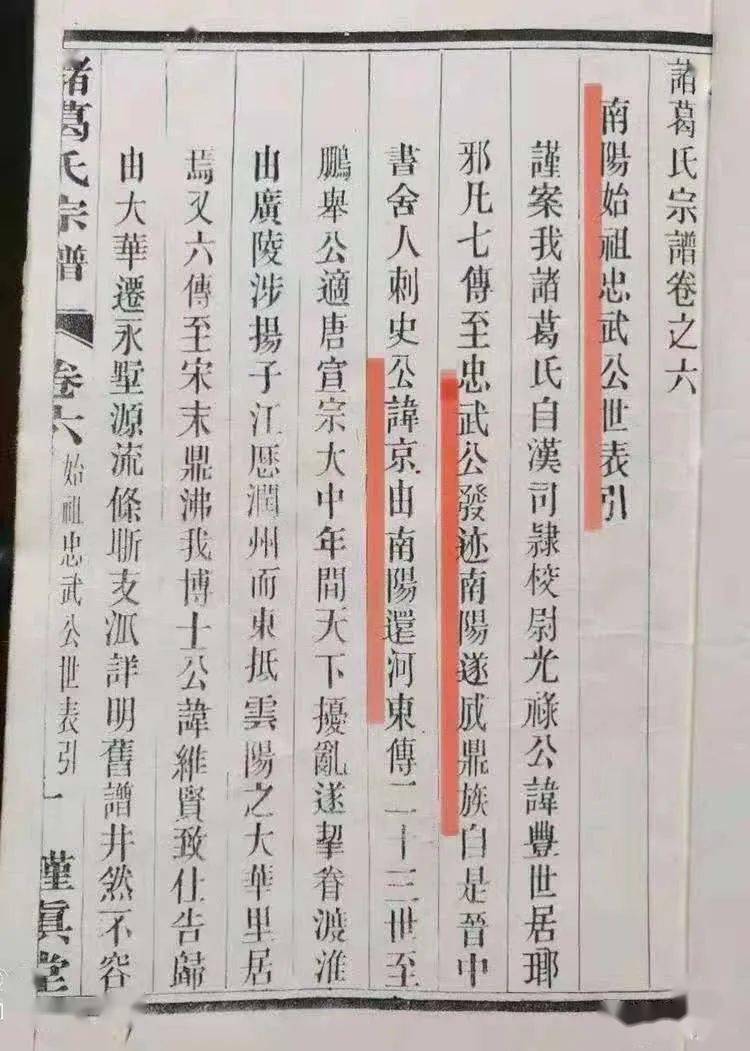 諸葛氏宗譜卷之六
南陽始祖忠武公世表引
謹案我諸葛氏自漢司隷校尉光祿公諱豐世居瑯
邪凡七傳至忠武公發迹南陽遂成鼎族自是晉中
書舍人刺史公諱京由南陽還河東傳二十三世至
鵬舉公適唐宣宗大中年間天下擾亂遂挈眷渡淮
由廣陵涉揚子江歷潤州而東抵雲陽之大華里居
焉又六傳至宋末鼎沸我博士公諱維賢致仕告歸
由大華遷永墅源流條晣支派詳明舊譜井然不容
諸葛氏宗譜 卷六 始祖忠武公世表引 一 謹眞堂